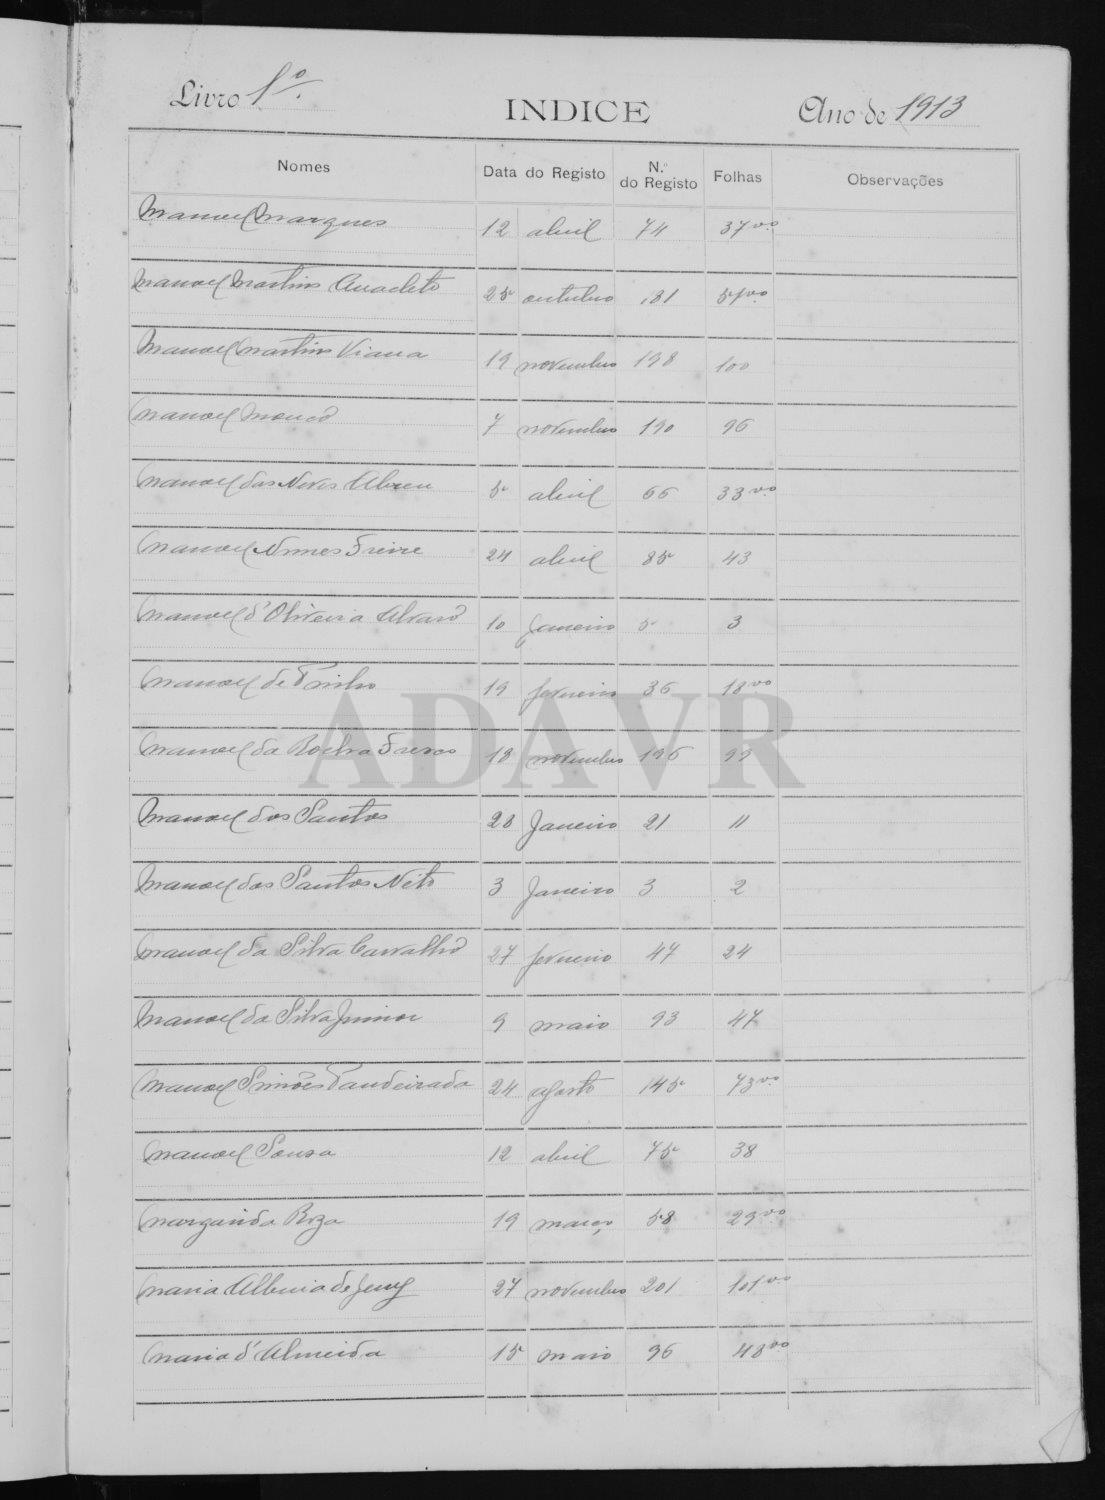 Livro 1º.
INDICE
Ano de 1913
Nomes Data do Registo N.º do Registo Folhas Observações
Manoel Marques 12 abril 74 37vº
Manoel Martins Anacleto 25 outubro 181 91vº
Manoel Martins Viana 19 novembro 198 100
Manoel Mouco 7 novembro 190 96
Manoel das Neves Abreu 5 abril 66 33vº
Manoel Nunes Freire 24 abril 85 43
Manoel d'Oliveira Alvaro 10 Janeiro 5 3
Manoel de Pinho 19 fevereiro 36 18vº
Manoel da Rocha 18 novembro 196 99
Manoel dos Santos 20 Janeiro 21 11
Manoel dos Santos Neto 3 Janeiro 3 2
Manoel da Silva Carvalho 27 fevereiro 47 24
Manoel da Silva Junior 9 maio 93 47
Manoel Simões Pandeirada 24 agosto 145 73vº
Manoel Sousa 12 abril 75 38
Margarida Roza 19 março 58 29vº
Maria Albina de Jesus 27 novembro 201 101vº
Maria d'Almeida 15 maio 96 48vº
ADAVR